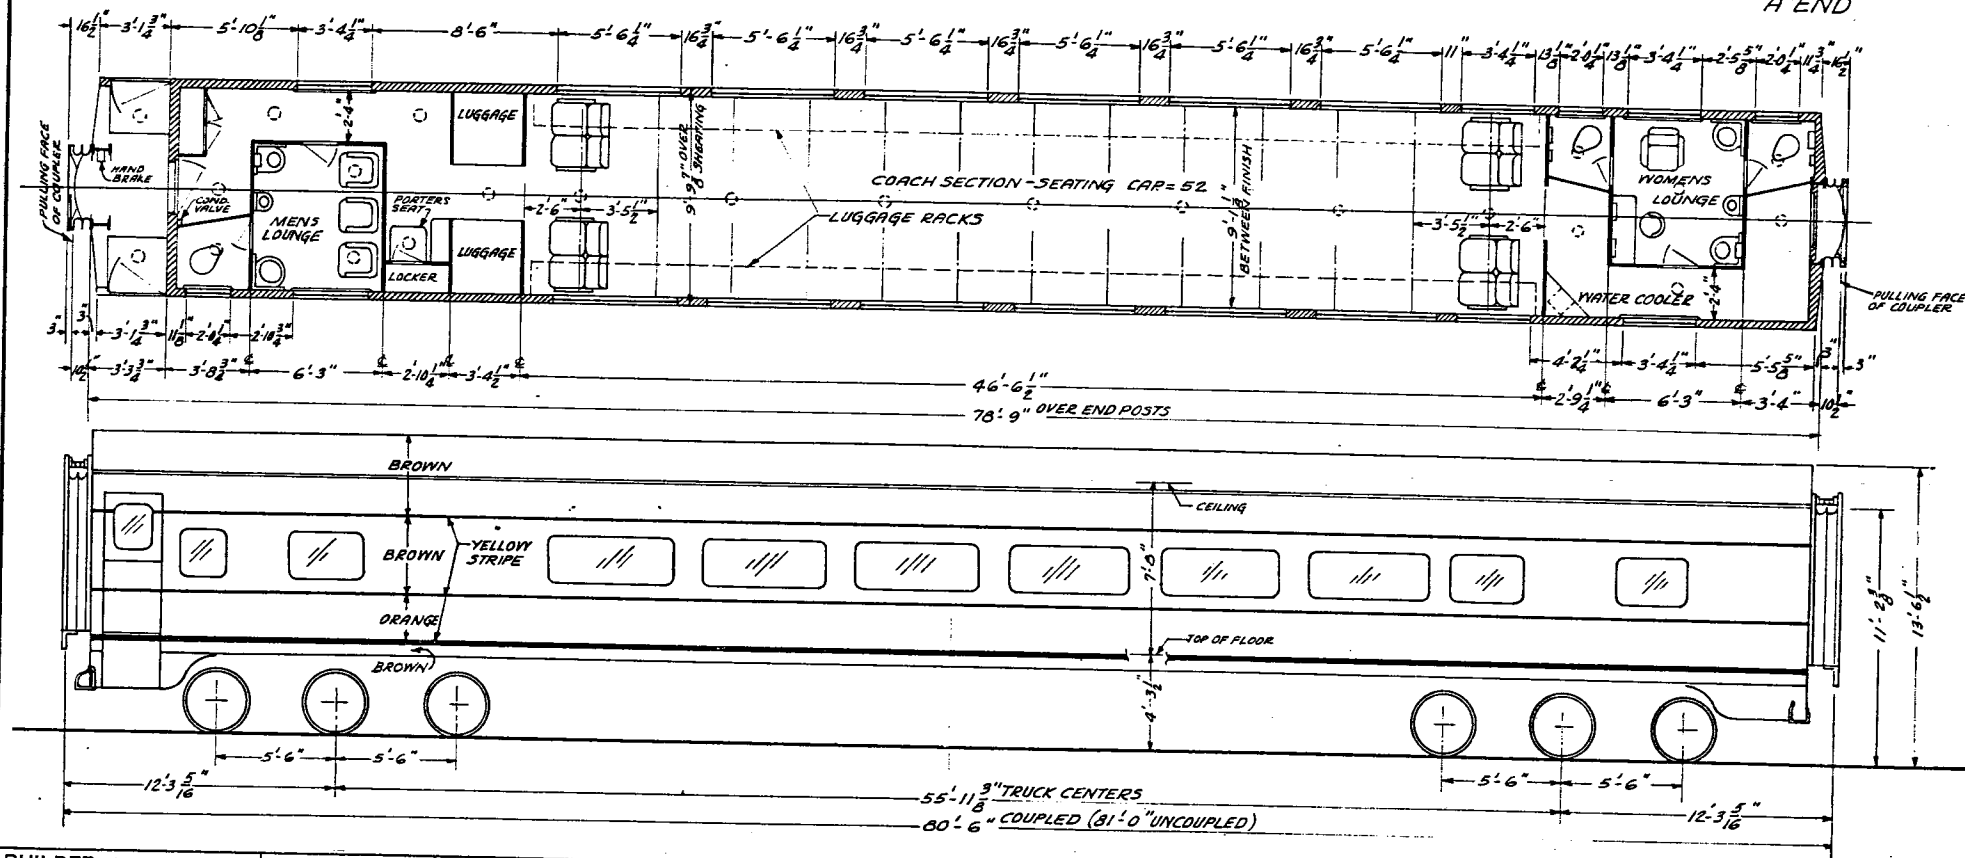 A END
16 1/2" 3'-1 3/4" 5'-10 1/8" 3'-4 1/4" 8'-6" 5'-6 1/4" 16 3/4" 5'-6 1/4" 16 3/4" 5'-6 1/4" 16 3/4" 5'-6 1/4" 16 3/4" 5'-6 1/4" 16 3/4" 5'-6 1/4" 11" 3'-4 1/4" 13 1/8" 2'-0 1/4" 13 1/8" 3'-4 1/4" 2'-5 5/8" 2'-0 1/4" 11 3/4" 16 1/2"
PULLING FACE
OF COUPLER
HAND
BRAKE
COND.
VALVE
MENS
LOUNGE
2'-4"
PORTERS
SEAT
LOCKER
LUGGAGE
LUGGAGE
2'-6" 3'-5 1/2"
9'-9 7/8" OVER
SHEATING
COACH SECTION - SEATING CAP. = 52
LUGGAGE RACKS
9'-1 1/8"
BETWEEN FINISH
3'-5 1/2" 2'-6"
WOMENS
LOUNGE
WATER COOLER
2'-4"
PULLING FACE
OF COUPLER
3" 3" 3'-1 3/4" 11 1/8" 2'-0 1/4" 2'-10 3/4"
10 1/2" 3'-3 3/4" 3'-8 3/4" 6'-3" 2'-10 1/4" 3'-4 1/2" 46'-6 1/2"
4'-2 1/4" 3'-4 1/4" 5'-5 5/8" 3" 3"
2'-9 1/4" 6'-3" 3'-4" 10 1/2"
78'-9" OVER END POSTS
BROWN
CEILING
BROWN
YELLOW
STRIPE
7'-8"
ORANGE
TOP OF FLOOR
BROWN
4'-3 1/2"
11'-2 3/8"
13'-6 1/2"
5'-6" 5'-6" 5'-6" 5'-6"
12'-3 5/16" 55'-11 3/8" TRUCK CENTERS 12'-3 5/16"
80'-6" COUPLED (81'-0" UNCOUPLED)